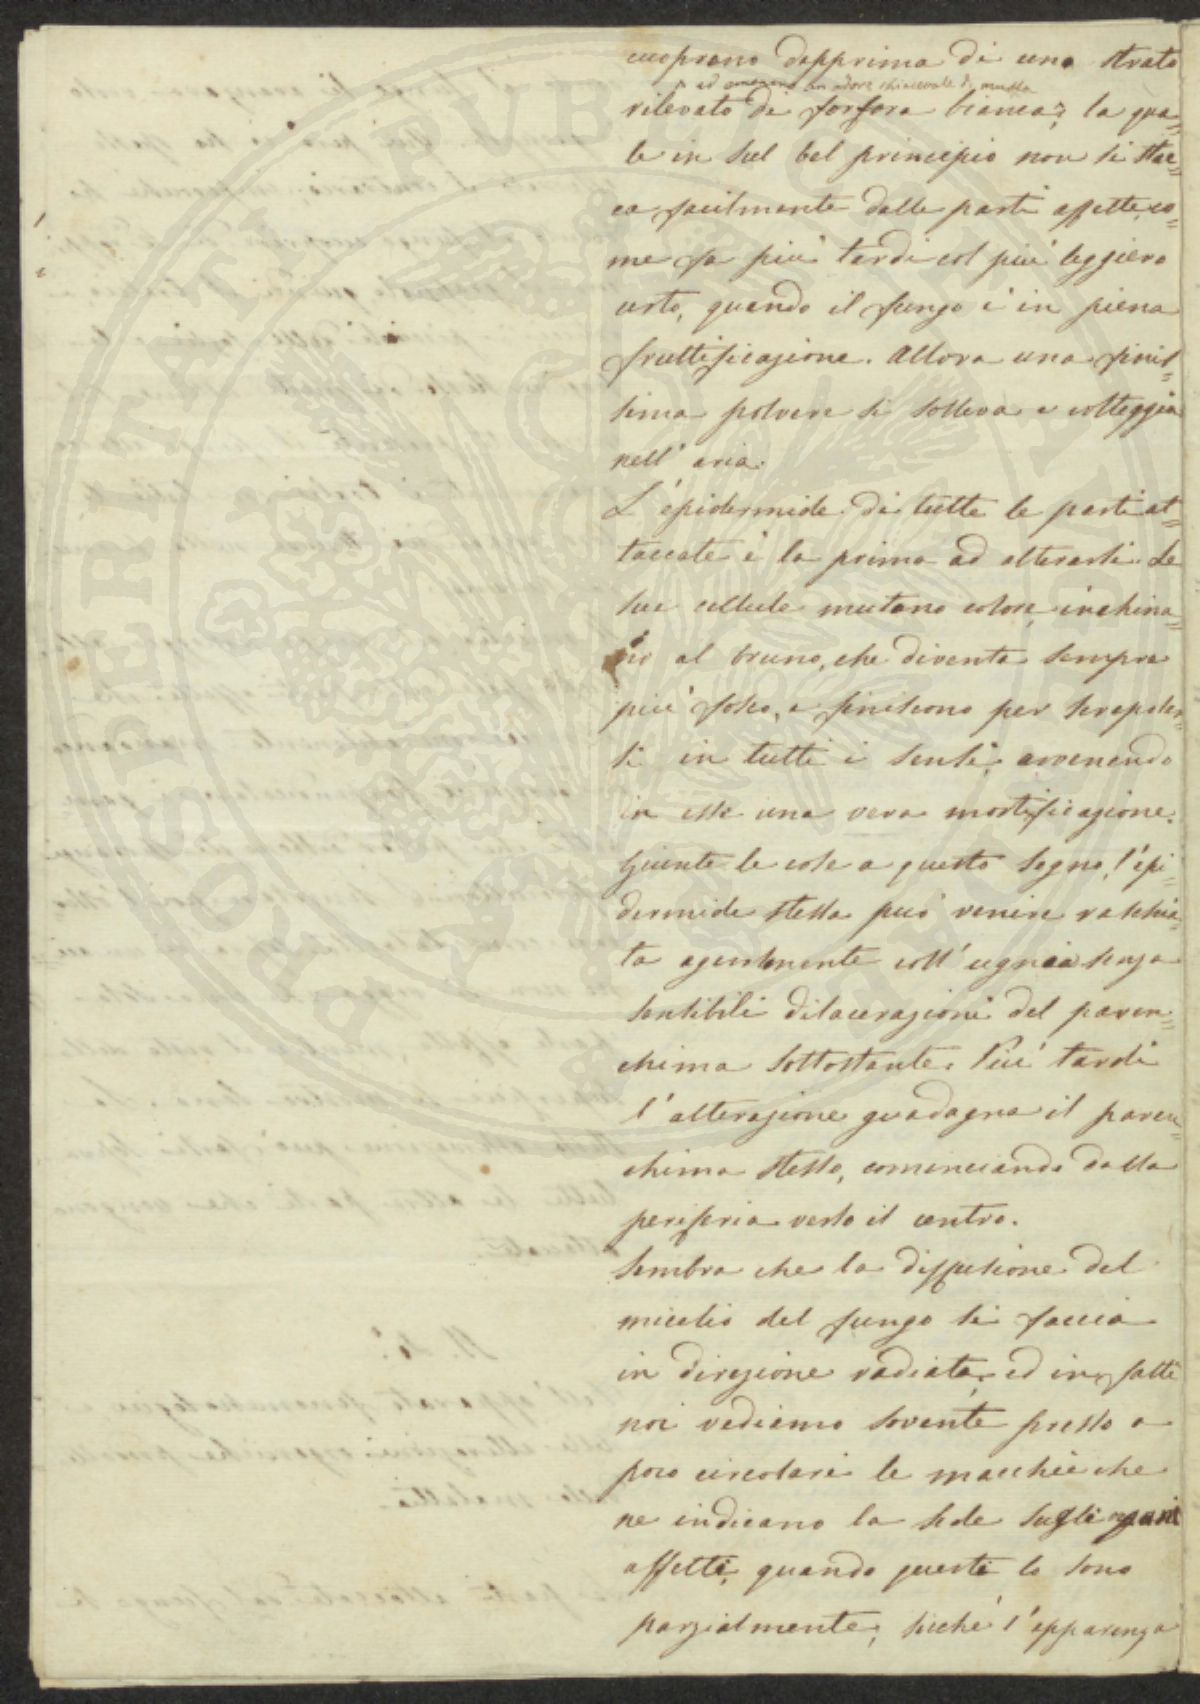 cuoprono dapprima di uno strato
ed emanano un odore spiacevole di muffa
rilevato di forfora bianca; la qua=
le in sul bel principio non si stac=
ca facilmente dalle parti affette, co=
me fa più tardi col più leggiero
urto, quando il fungo è in piena
fruttificazione. Allora una finis=
sima polvere si solleva e volteggia
nell' aria.
L' epidermide di tutte le parti at=
taccate è la prima ad alterarsi. Le
sue cellule mutano colore, inchina=
no al bruno, che diventa sempre
più fosco, e finiscono per screpolar=
si in tutti i sensi, avvenendo
in esse una vera mortificazione.
Giunte le cose a questo segno, l' epi=
dermide stessa può venire raschia=
ta agevolmente coll' ugnia senza
sensibili dilacerazioni del paren=
chima sottostante. Più tardi
l' alterazione guadagna il paren=
chima stesso, cominciando dalla
periferia verso il centro.
Sembra che la diffusione del
micelio del fungo si faccia
in direzione radiata, ed in fatti
noi vediamo sovente presso a
poco circolari le macchie che
ne indicano la sede sugli organi
affetti, quando questi lo sono
parzialmente; sicchè l' apparenza
PROSPERITATI PUBLICAE